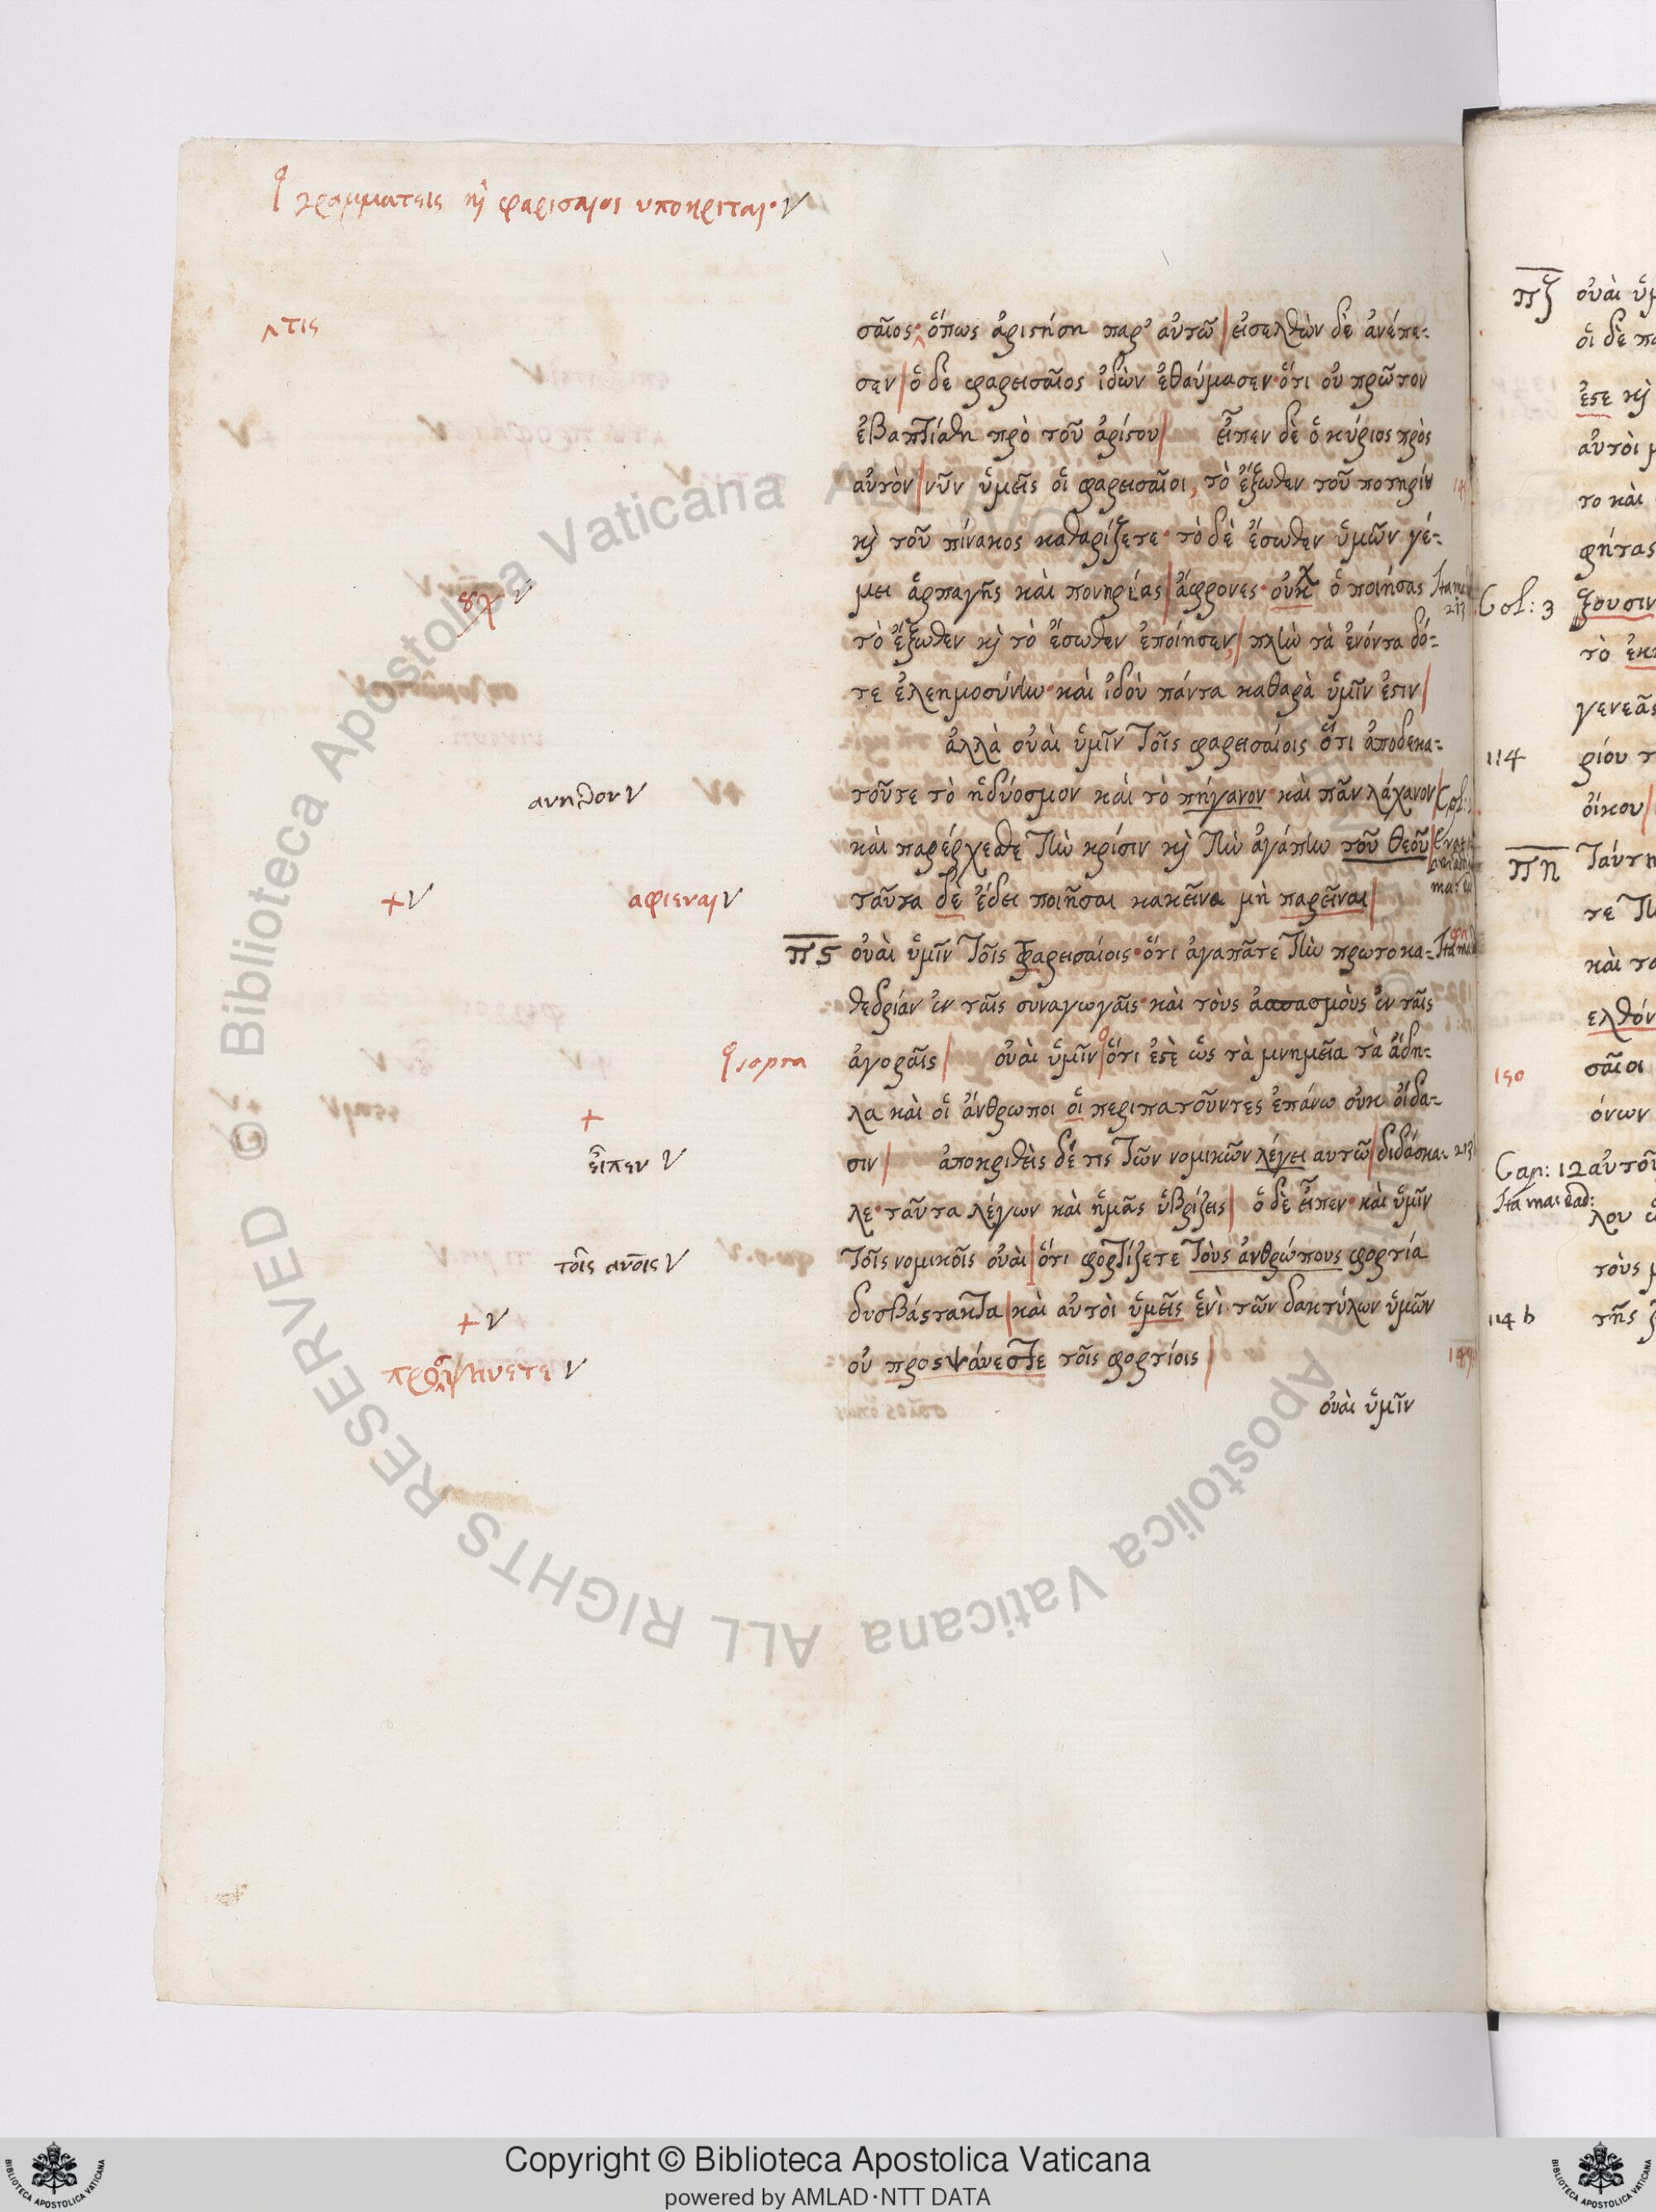 γραμματεις κ̀ φαρισαιοι υποκριται·
‸τις
σαῖος· ὅπως ἀριστήση παρ' αὐτῶ εἰσελθὼν δὲ ἀνέπε-
σεν ὁ δὲ φαρεισαῖος ἰδὼν ἐθαύμασεν· ὅτι οὐ πρῶτον
ἐβαπτίσθη πρὸ τοῦ ἀρίστου εἶπεν δὲ ὁ κύριος πρὸς
αὐτὸν νῦν ὑμεῖς οἱ φαρεισαῖοι, τὸ ἔξωθεν τοῦ ποτηρίου
κ̀ τοῦ πίνακος καθαρίζετε· τὸ δὲ ἔσωθεν ὑμῶν γέ-
ουχ
μει ἁρπαγῆς καὶ πονηρίας ἄφρονες· οὐκ ὁ ποιήσας
213
τὸ ἔξωθεν κ̀ τὸ ἔσωθεν ἐποίησεν, πλὴν τὰ ἐνόντα δό-
τε ἐλεημοσύνην· καὶ ἰδοὺ πάντα καθαρὰ ὑμῖν ἐστιν
ἀλλὰ οὐαὶ ὑμῖν τοῖς φαρεισαίοις ὅτι ἀποδεκα-
ανηθον
τοῦτε τὸ ἡδύοσμον καὶ τὸ πήγανον· καὶ πᾶν λάχανον
καὶ παρέρχεσθε τὴν κρίσιν κ̀ τὴν ἀγάπην τοῦ θεοῦ
+ αφιεναι
ταῦτα δὲ ἔδει ποιῆσαι κακεῖνα μὴ παρεῖναι
πς οὐαὶ ὑμῖν τοῖς φαρεισαίοις· ὅτι ἀγαπᾶτε τὴν πρωτοκα-
θεδρίαν ἐν ταῖς συναγωγαῖς· καὶ τοὺς ἀσπασμοὺς ἐν ταῖς
sopra
ἀγοραῖς οὐαὶ ὑμῖν ὅτι ἐστὲ ὡς τὰ μνημεῖα τὰ ἄδη-
+
λα καὶ οἱ ἄνθρωποι οἱ περιπατοῦντες ἐπάνω οὐκ οἴδα-
εἶπεν
σιν ἀποκριθεὶς δέ τις τῶν νομικῶν λέγει αυτῶ διδάσκα-
λε· ταῦτα λέγων καὶ ἡμᾶς ὑβρίζεις ὁ δὲ εἶπεν· καὶ ὑμῖν
τοῖς ανοις
τοῖς νομικοῖς οὐαὶ ὅτι φορτίζετε τοὺς ἀνθρώπους φορτία
+
δυσβάστακτα καὶ αὐτοὶ ὑμεῖς ἑνὶ τῶν δακτύλων ὑμῶν
οὐ προσψάυεστε τοῖς φορτίοις
οὐαὶ ὑμῖν
πζ οὐαὶ
οἱ δὲ
ἐστε κ̀
αὐτοὶ
το καὶ
φήτας
Col: 3 ξουσιν
τὸ
γενεᾶς
114 ρίου
οἴκου
πη ταύτη
τε
καὶ
ελθόν
150 σαῖοι
όνων
Cap: 12 αὐτοῦ
λου
τοὺς
114 b τῆς
Biblioteca Apostolica Vaticana ALL RIGHTS RESERVED ©
Copyright © Biblioteca Apostolica Vaticana
powered by AMLAD·NTT DATA
BIBLIOTECA APOSTOLICA VATICANA
BIBLIOTECA APOSTOLICA VATICANA